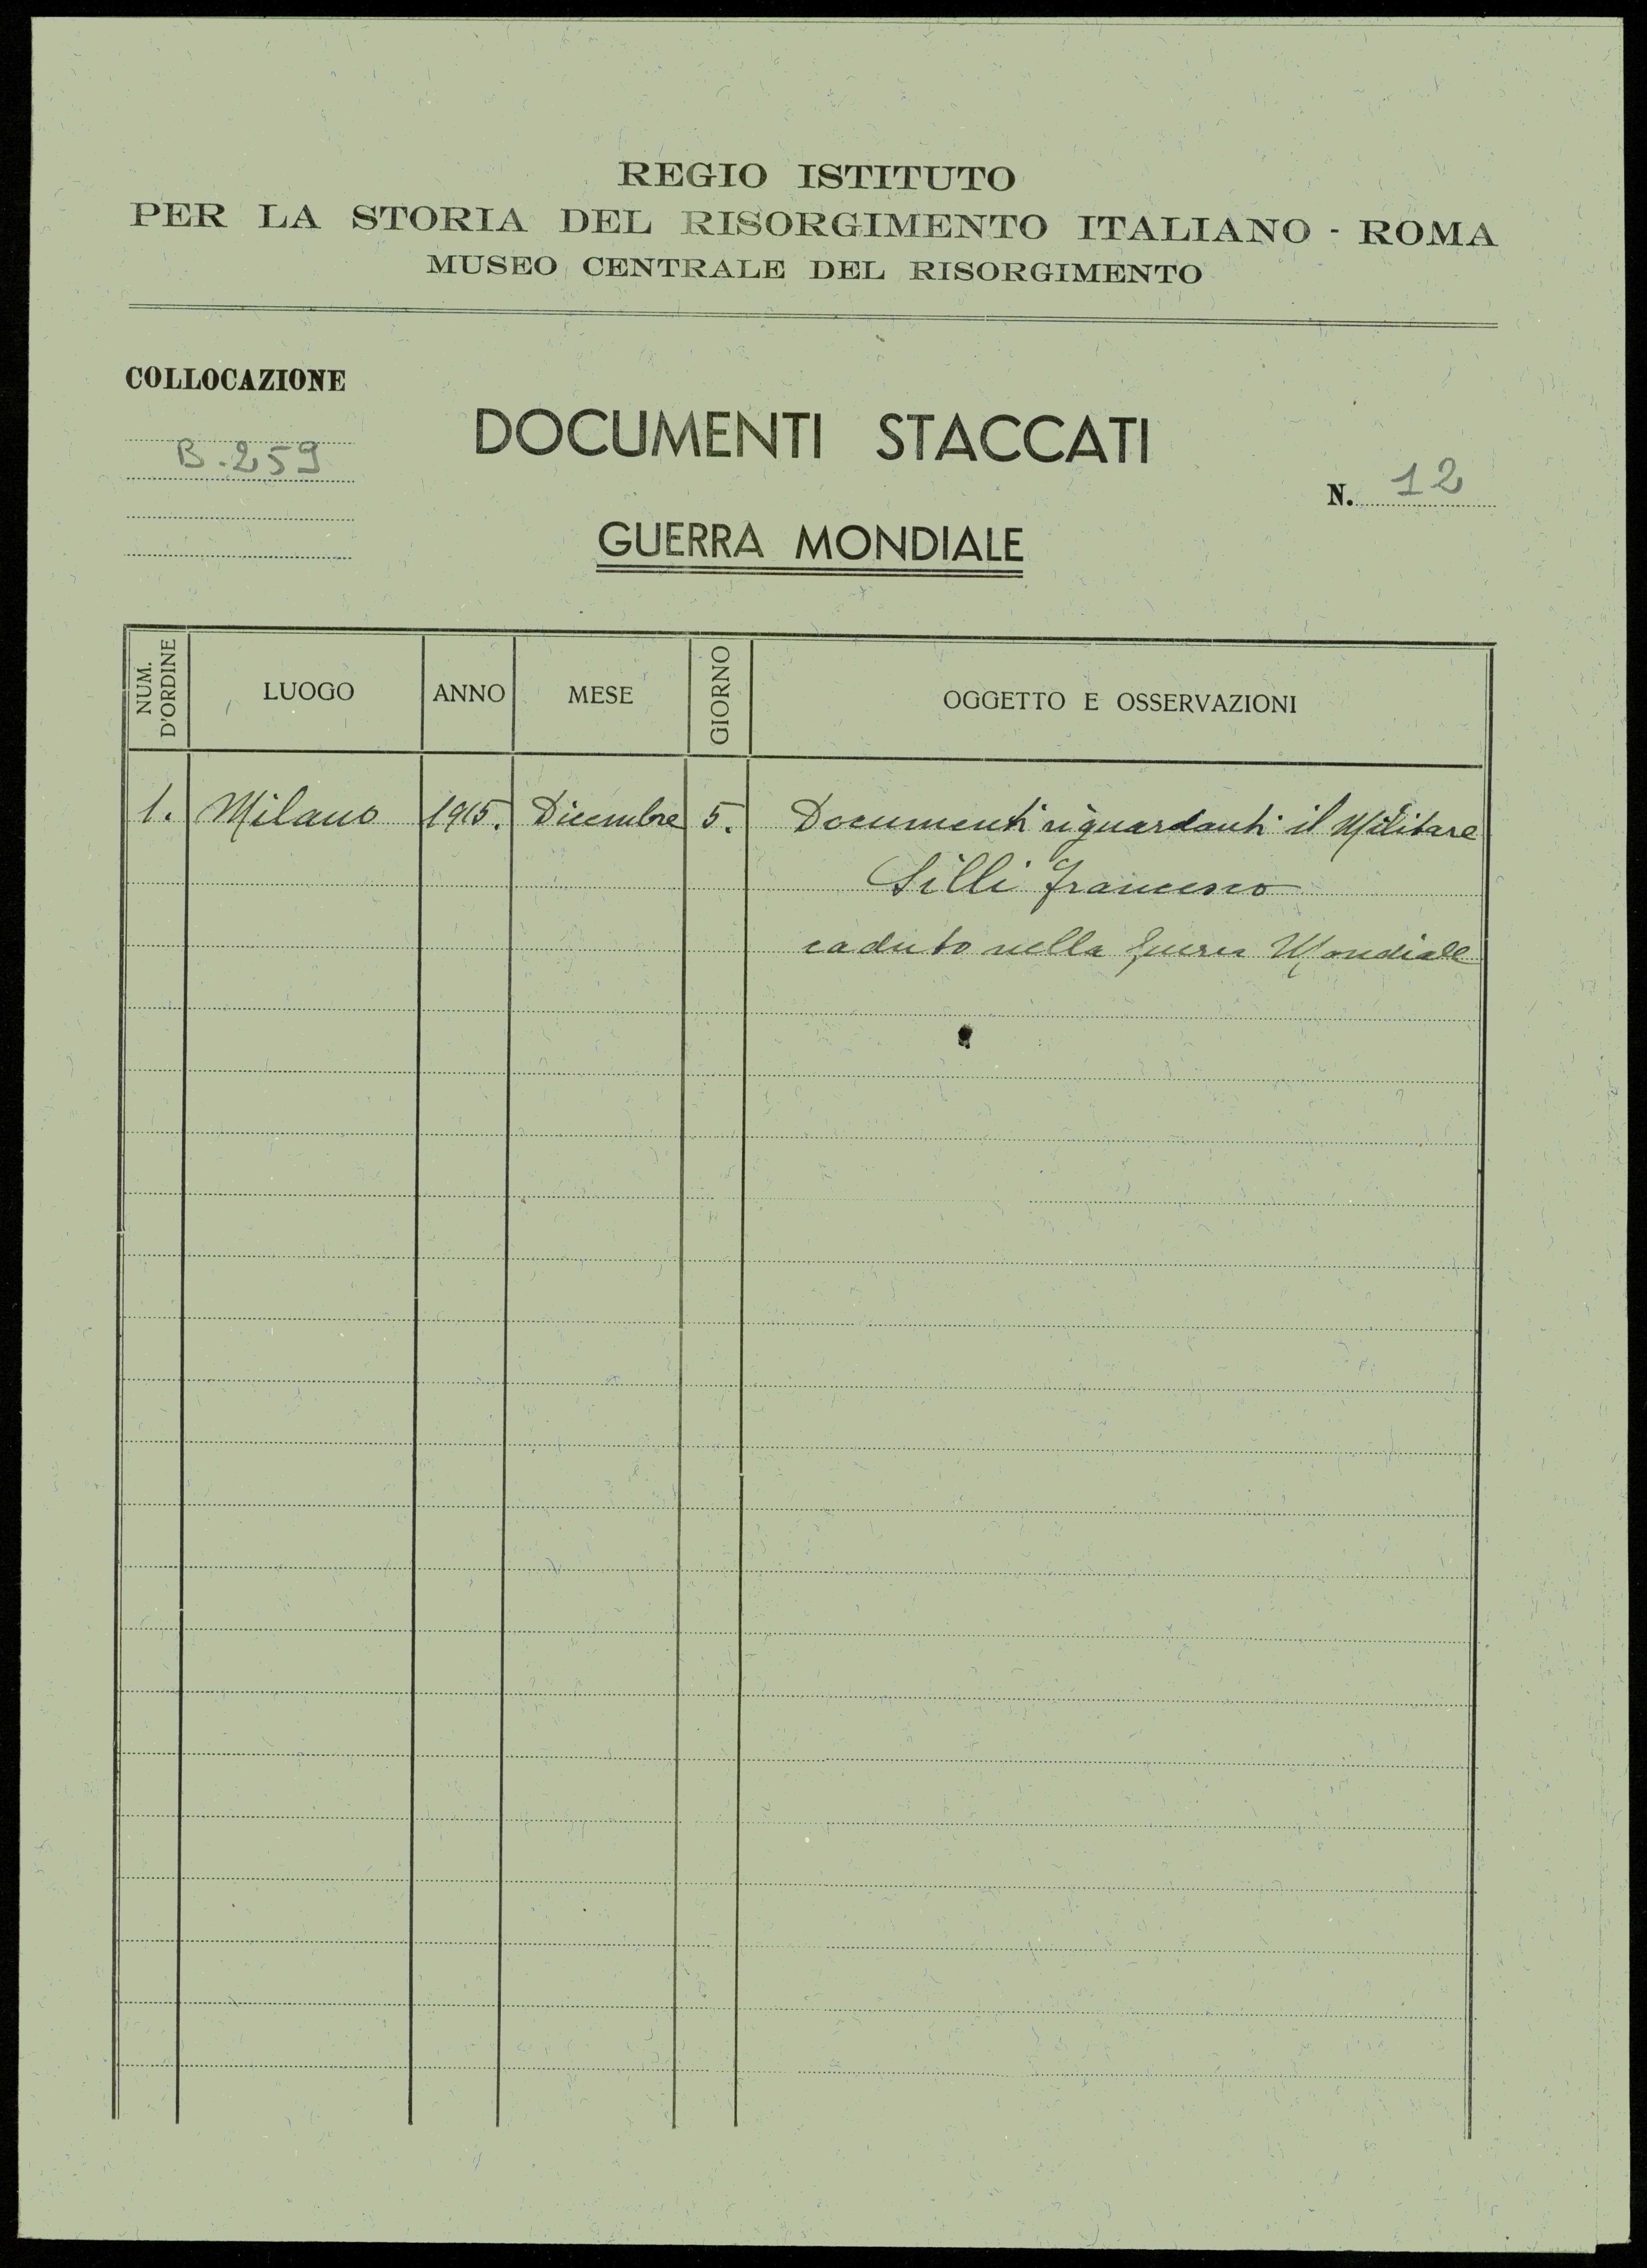 REGIO ISTITUTO
PER LA STORIA DEL RISORGIMENTO ITALIANO - ROMA
MUSEO CENTRALE DEL RISORGIMENTO
COLLOCAZIONE
B. 259
DOCUMENTI STACCATI
N. 12
GUERRA MONDIALE
NUM. D'ORDINE LUOGO ANNO MESE GIORNO OGGETTO E OSSERVAZIONI
1. Milano 1915. Dicembre 5. Documenti riguardanti il Militare
Silli Francesco
caduto nella Guerra Mondiale